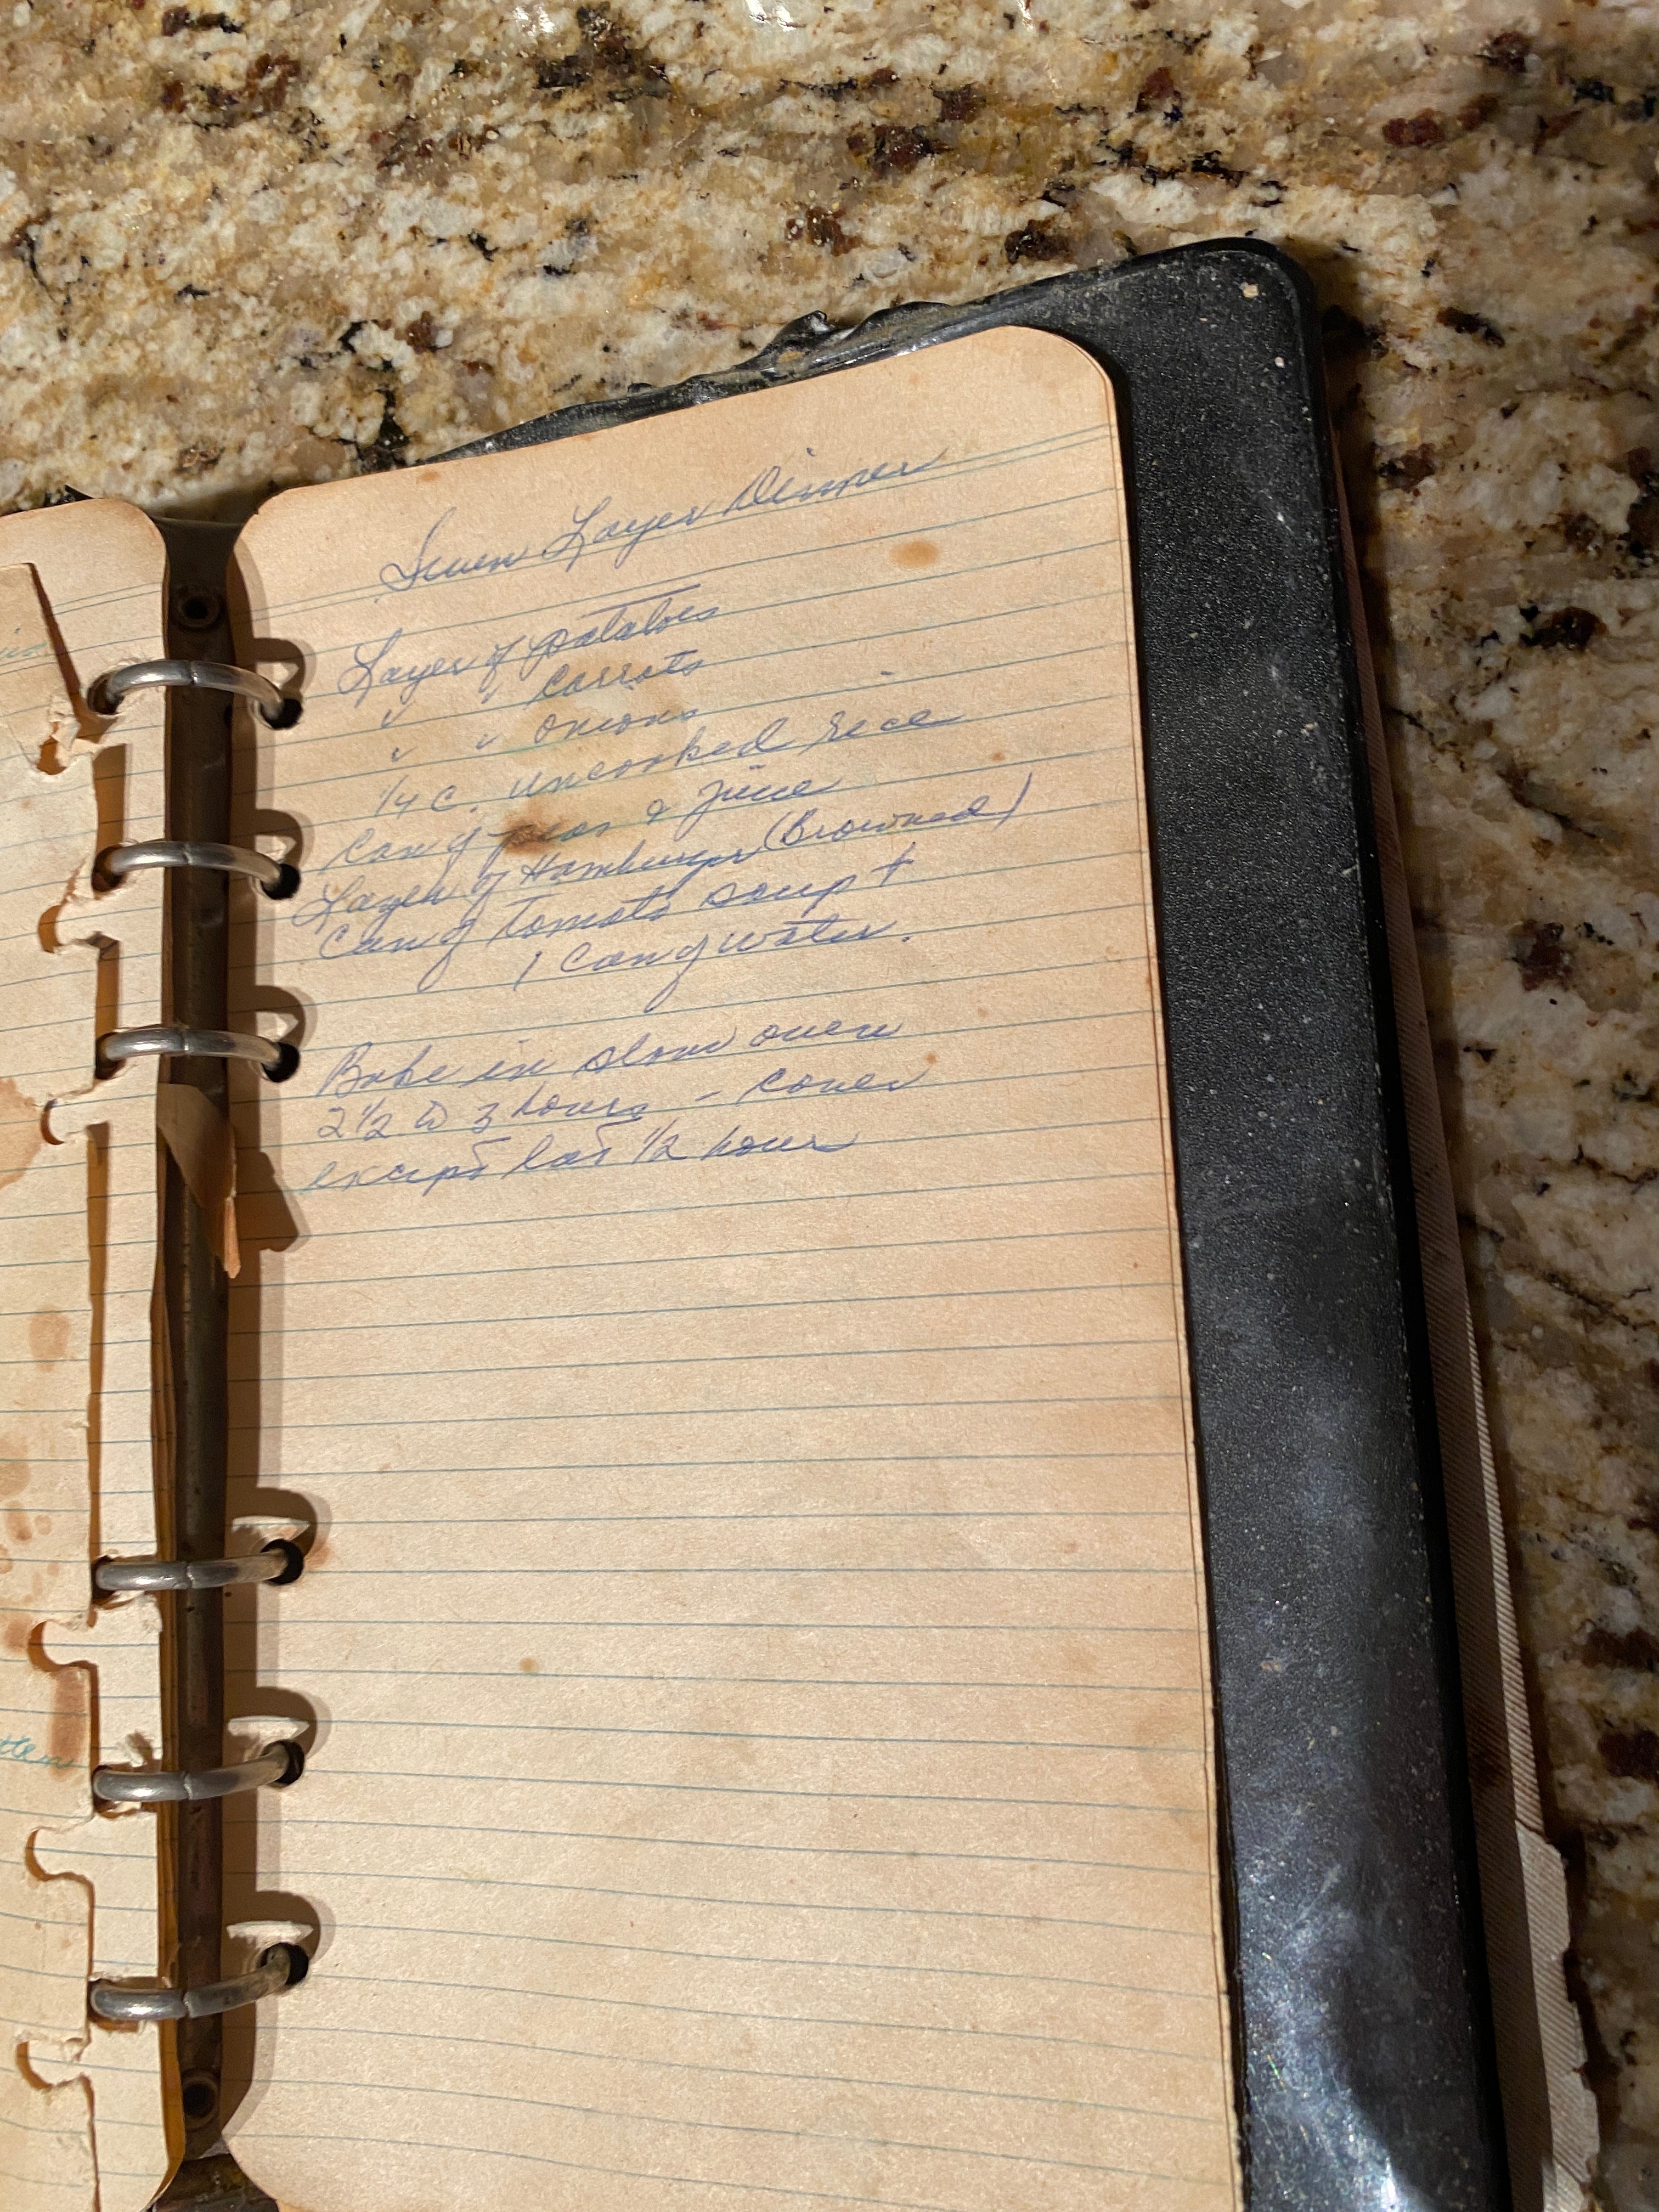 Seven Layer Dinner
Layer of potatoes
" " carrots
" " onions
1/4 c. uncooked rice
Can of peas & juice
Layer of Hamburger (Browned)
Can of tomato soup +
1 can of water.
Bake in slow oven
2 1/2 to 3 hours - cover
except last 1/2 hour